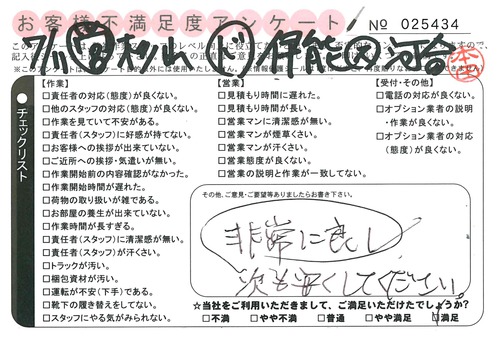 お客様不満足度アンケート
No 025434
チェックリスト
【作業】
□責任者の対応(態度)が良くない。
□他のスタッフの対応(態度)が良くない。
□作業を見ていて不安がある。
□責任者(スタッフ)に好感が持てない。
□お客様への挨拶が出来ていない。
□ご近所への挨拶・気遣いが無い。
□作業開始前の内容確認がなかった。
□作業開始時間が遅れた。
□荷物の取り扱いが雑である。
□お部屋の養生が出来ていない。
□作業時間が長すぎる。
□責任者(スタッフ)に清潔感が無い。
□責任者(スタッフ)が汗くさい。
□トラックが汚い。
□梱包資材が汚い。
□運転が不安(下手)である。
□靴下の履き替えをしてない。
□スタッフにやる気がみられない。
【営業】
□見積もり時間に遅れた。
□見積もり時間が長い。
□営業マンに清潔感が無い。
□営業マンが煙草くさい。
□営業マンが汗くさい。
□営業態度が良くない。
□営業の説明と作業が一致してない。
【受付・その他】
□電話の対応が良くない。
□オプション業者の説明
・作業が良くない。
□オプション業者の対応
(態度)が良くない。
その他、ご意見・ご要望等ありましたらお書き下さい。
非常に良し
次も安くしてください。
☆当社をご利用いただきまして、ご満足いただけたでしょうか?
□不満 □やや不満 □普通 □やや満足 □満足